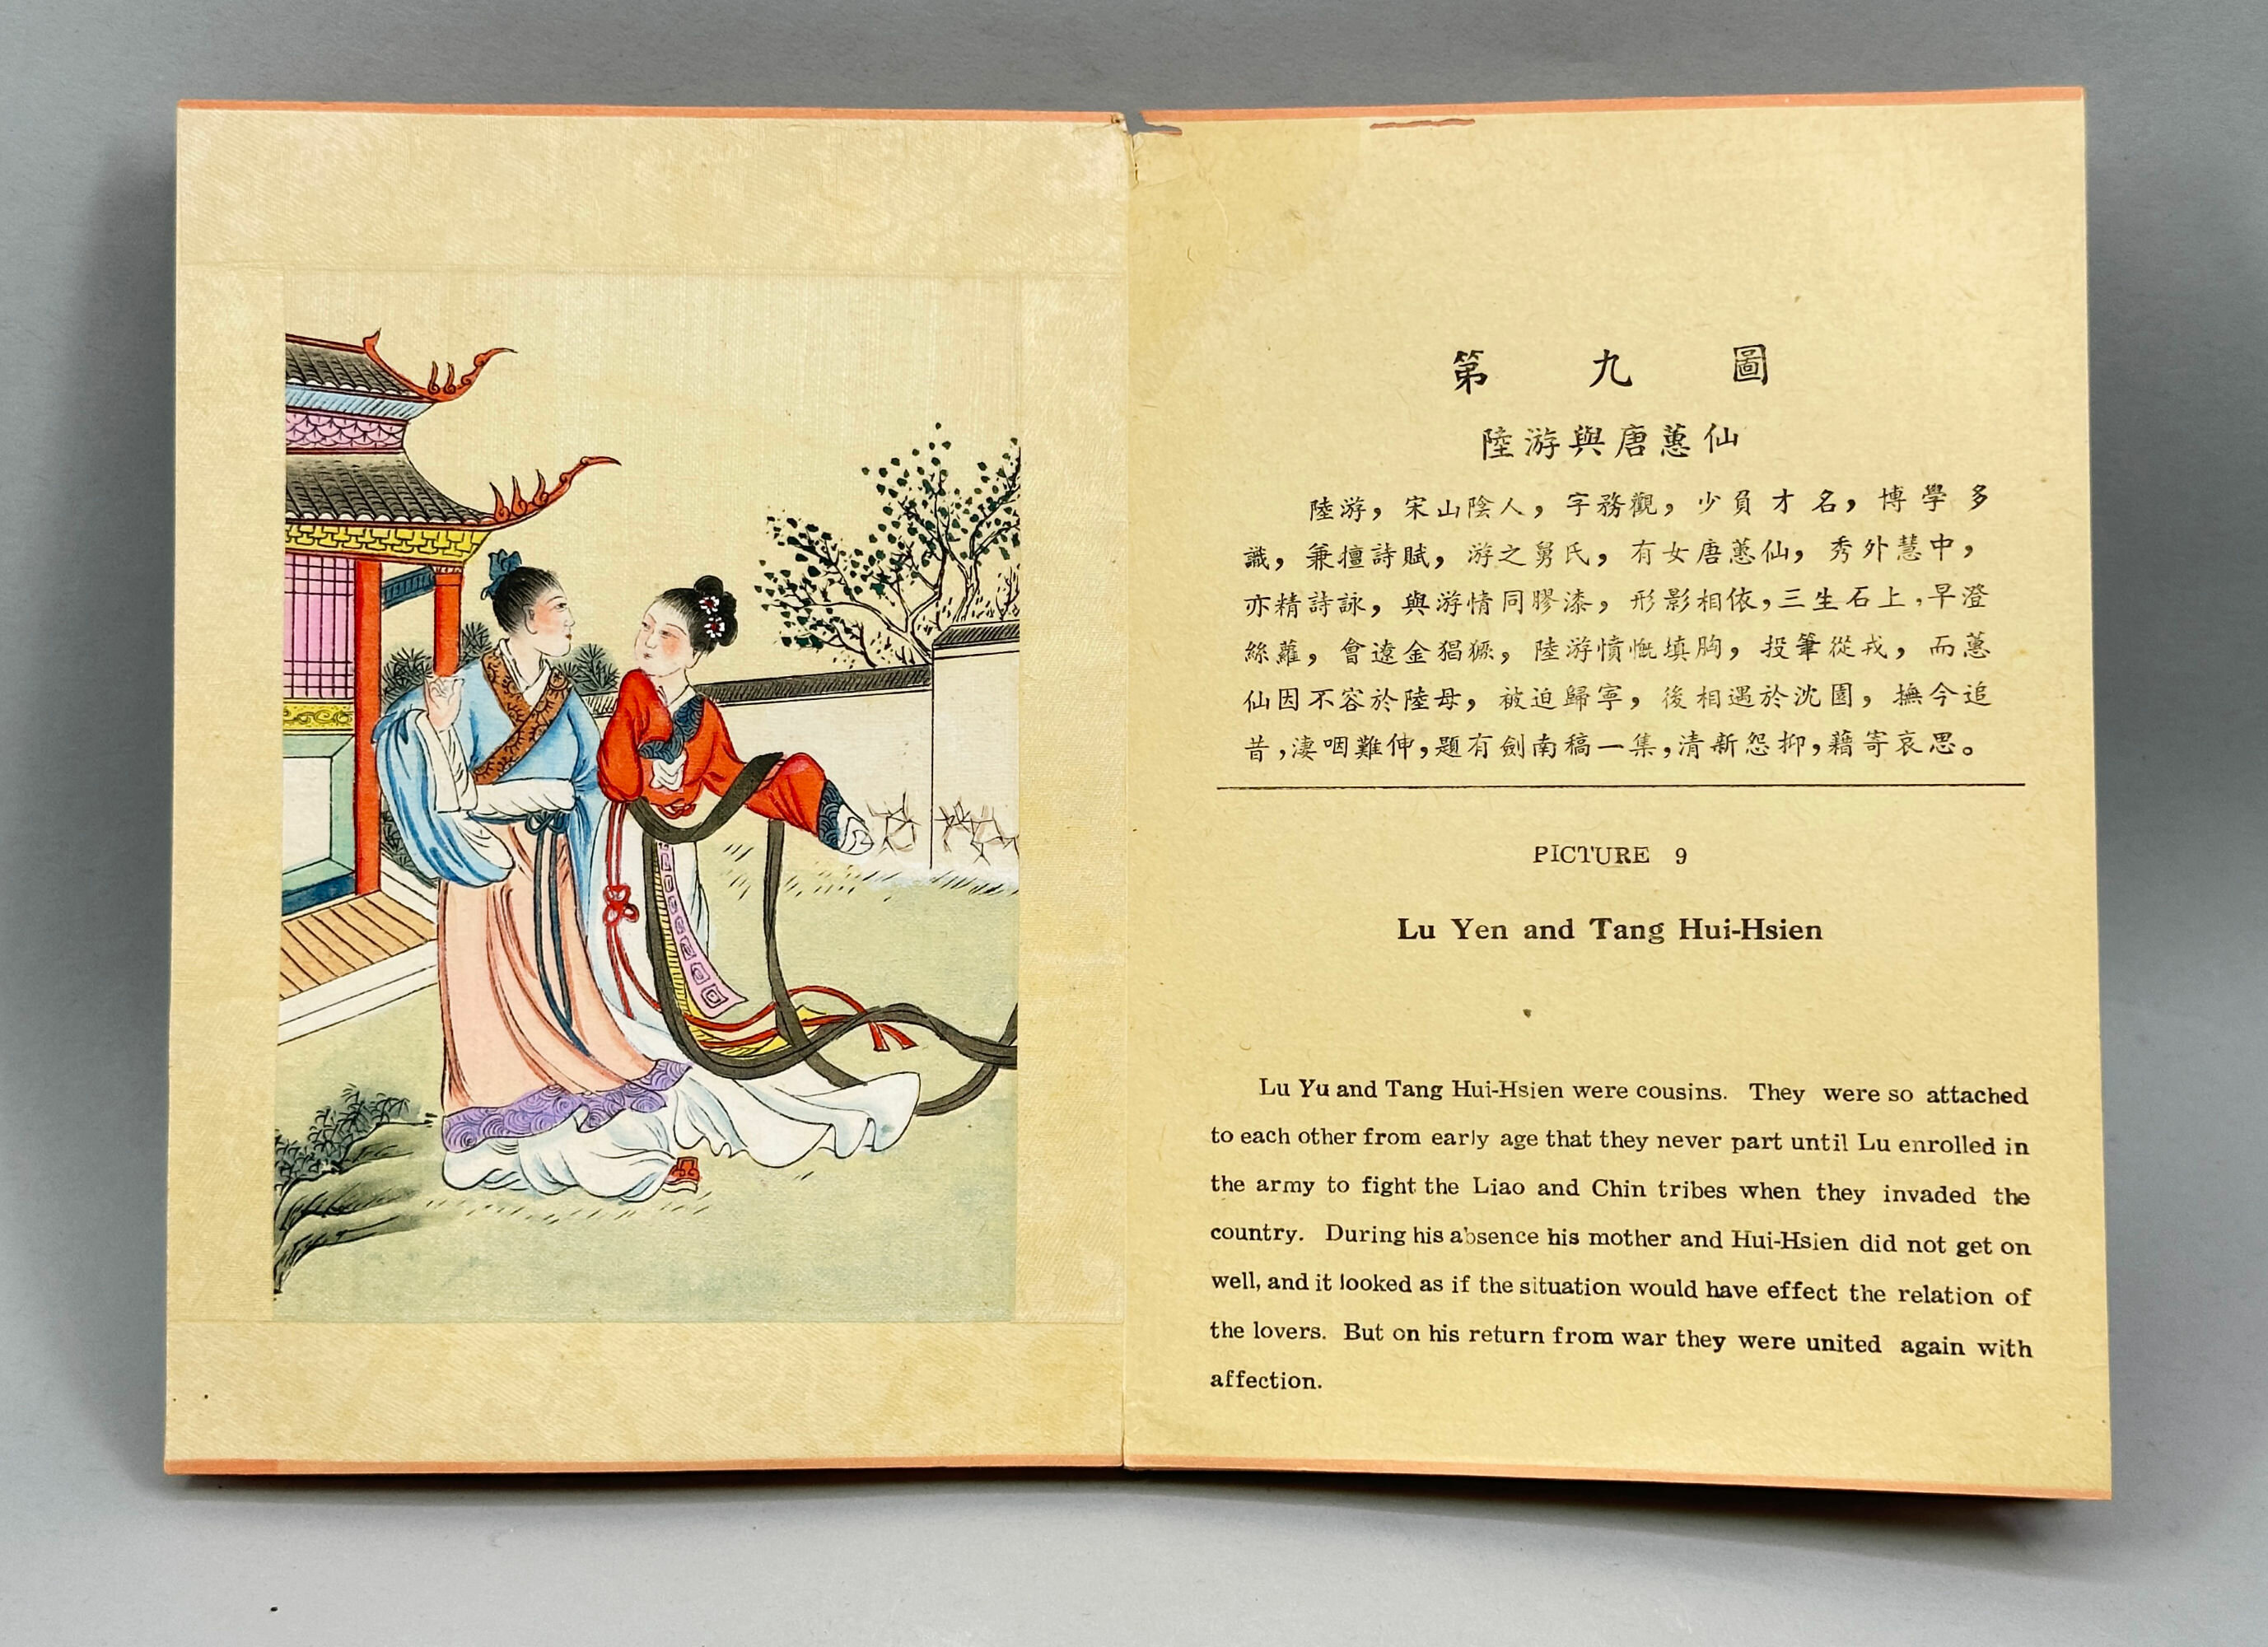 第九圖
陸游與唐蕙仙
陸游，宋山陰人，字務觀，少負才名，博學多
識，兼擅詩賦，游之舅氏，有女唐蕙仙，秀外慧中，
亦精詩詠，與游情同膠漆，形影相依，三生石上，早證
絲蘿，會遼金猖獗，陸游憤慨填胸，投筆從戎，而蕙
仙因不容於陸母，被迫歸寧，後相遇於沈園，撫今追
昔，淒咽難伸，題有劍南稿一集，清新怨抑，藉寄哀思。
PICTURE 9
Lu Yen and Tang Hui-Hsien
Lu Yu and Tang Hui-Hsien were cousins. They were so attached
to each other from early age that they never part until Lu enrolled in
the army to fight the Liao and Chin tribes when they invaded the
country. During his absence his mother and Hui-Hsien did not get on
well, and it looked as if the situation would have effect the relation of
the lovers. But on his return from war they were united again with
affection.